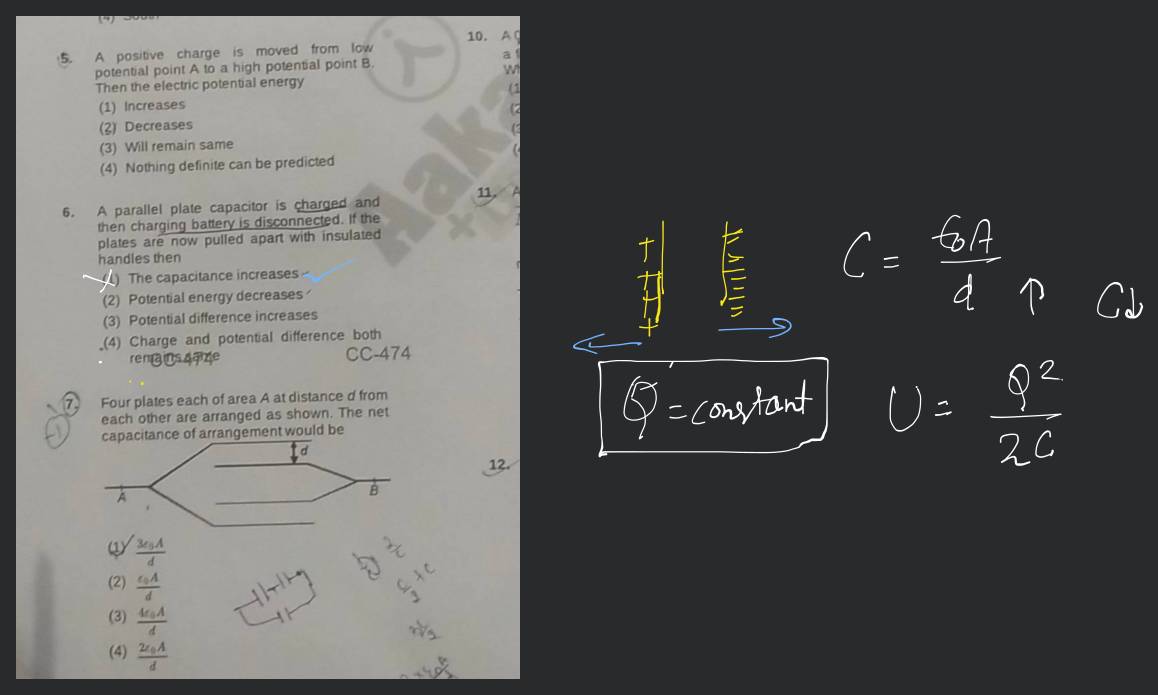 5. A positive charge is moved from low
potential point A to a high potential point B.
Then the electric potential energy
(1) Increases
(2) Decreases
(3) Will remain same
(4) Nothing definite can be predicted
6. A parallel plate capacitor is charged and
then charging battery is disconnected. If the
plates are now pulled apart with insulated
handles then
(1) The capacitance increases
(2) Potential energy decreases
(3) Potential difference increases
(4) Charge and potential difference both
remains same
CC-474
CC-474
7. Four plates each of area A at distance d from
each other are arranged as shown. The net
capacitance of arrangement would be
d
A
B
(1) 3ε₀A/d
(2) ε₀A/d
(3) 4ε₀A/d
(4) 2ε₀A/d
10. A
a f
11. A
12.
Aaka
C = ε₀A/d ↑ C↓
Q = constant
U = Q²/2C